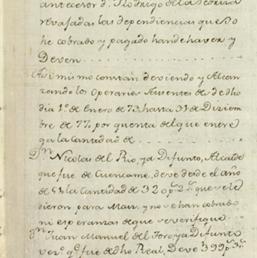 antecesor d.ⁿ Rodrigo de la
revajadas las dependiencias que
he cobrado y pagado han de haver y
Deven
Asi mismo constan deviendo y Alcan
zando los Operarios Ausentes de dho
dia 1.º de Enero de 73 hasta 31 de Diziem
bre de 77 por quenta del que entre
ga la Cantidad de
D.ⁿ Nicolas del Rio, ya Difunto, Alcalde
que fue de Cuencame, deve desde el año
de la Cantidad de 32 que se le
dieron para Maiz y no se han cobrado
ni esperanzas de que se verifique
D.ⁿ Juan Manuel del Toro ya Difunto
que fue de dho Real, Deve 399 p.ˢ